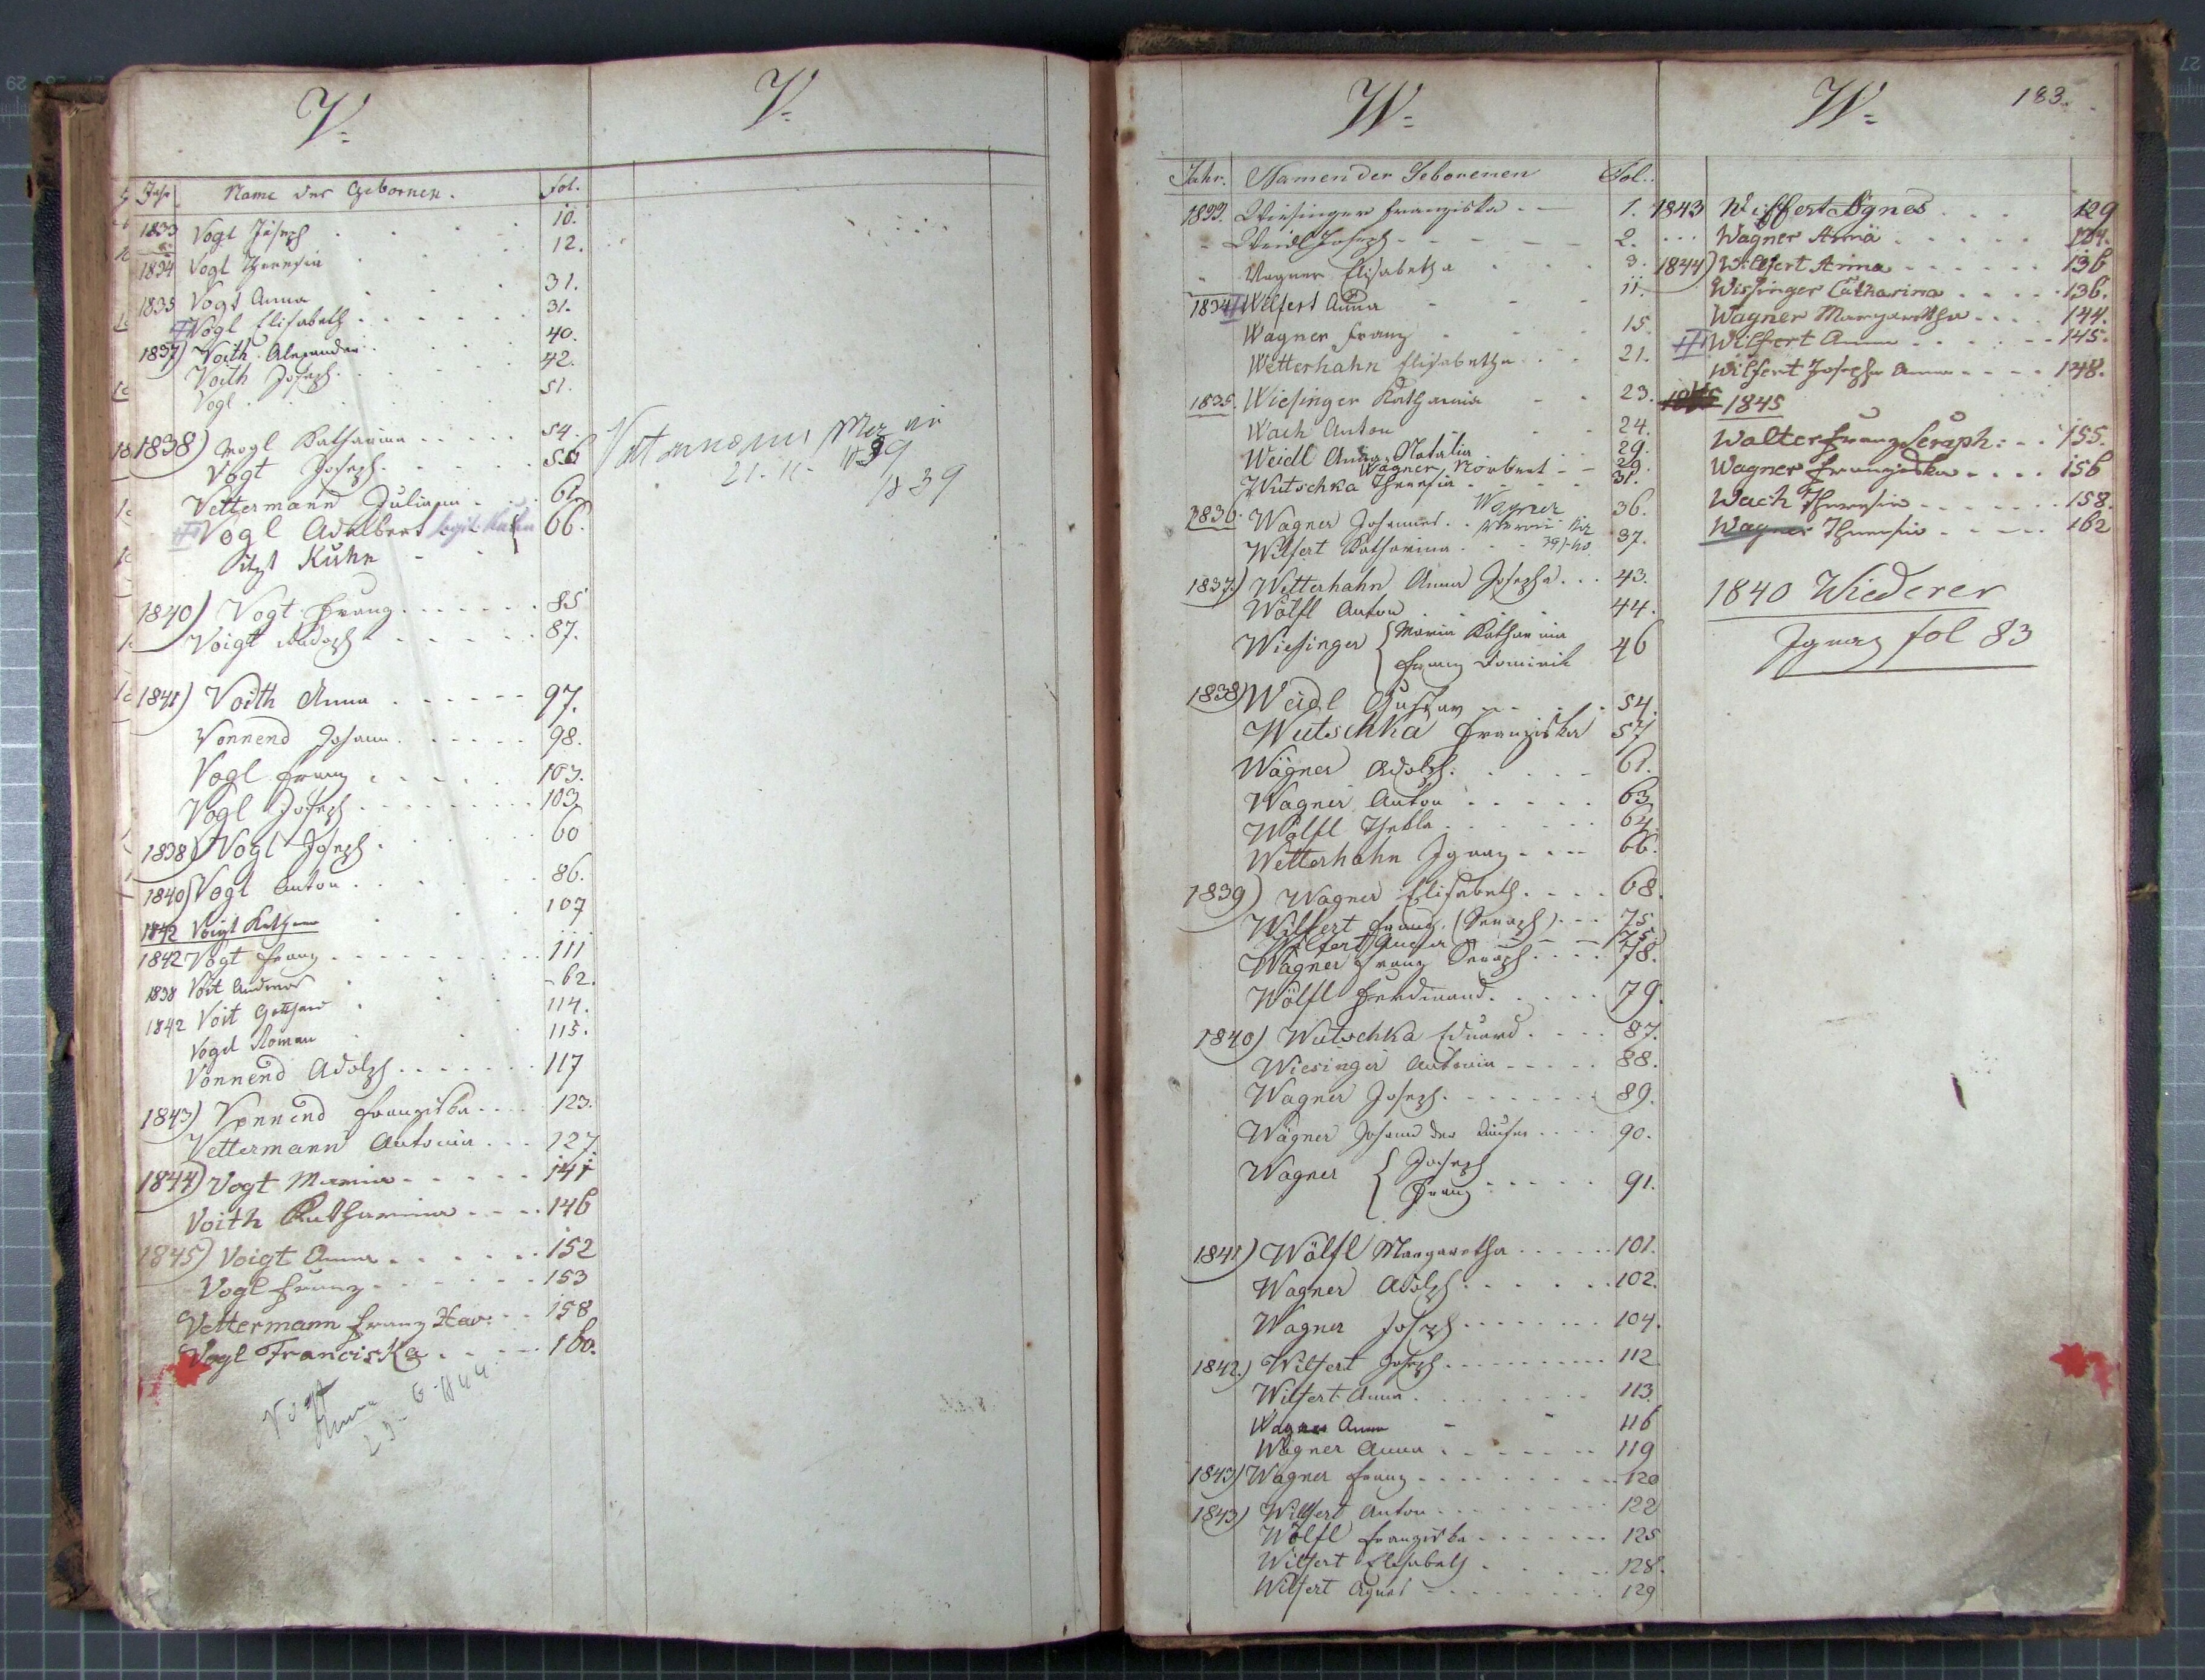 V.
Jahr Name der Gebornen. Fol.
1833 Vogl Joseph 10.
1834 Vogl Theresia 12.
1835 Vogt Anna 31.
Vogl Elisabeth 31.
1837) Voith Alexander 40.
Voith Joseph 42.
Vogl 51.
1838) Vogl Katharina 54.
Vogt Joseph 56
Vettermann Juliana 62
Vogl Adalbert 66.
itzt Kuhn
1840) Vogt Franz 85
Voigt Rudolph 87.
1841) Voith Anna 97.
Vonnend Johann 98.
Vogl Franz 103.
Vogl Joseph 103.
1838) Vogl Joseph 60
1840) Vogl Anton 86.
1842 Voigt 107
1842 Vogt Franz 111
1838 Voit Andreas 62.
1842 Voit Gotthard 114.
Vogel Roman 115.
Vonnend Adolph 117
1843) Vonnend Franziska 123.
Vettermann Antonia 127.
1844) Vogt Maria 141
Voith Katharina 146
1845) Voigt Anna 152
Vogl Franz 153
Vettermann Franz Xav: 158
Vogl Franciska 160.
Vogt
Anna
V.
21.
1839
W.
Jahr. Namen der Geborenen Fol.
1833. Wiesinger Franziska 1.
Weidl Joseph 2.
Wagner Elisabetha 3.
1834 Wilfert Anna 11.
Wagner Franz 15.
Wetterhahn Elisabetha 21.
1835. Wiesinger Katharina 23.
Wach Anton 24.
Weidl Anna Natalia 29.
Wagner Norbert 29.
Wutschka Theresia 31.
Wagner
1836. Wagner Johannes 36.
Wilfert Katharina 37.
1837) Wetterhahn Anna Josepha 43.
Wölfl Anton 44.
Wiesinger { Maria Katharina
Franz Dominik 46
1838) Weidl Gustav 54.
Wutschka Franziska 57
Wagner Adolph 61.
Wagner Anton 63
Wölfl Thekla 64.
Wetterhahn Ignaz 66.
1839) Wagner Elisabeth 68.
Wilfert Franz (Seraph) 75.
Wilfert 75.
Wagner Franz Seraph 78.
Wölfl Ferdinand 79.
1840) Wutschka Eduard 87.
Wiesinger Antonia 88.
Wagner Joseph 89.
Wagner Johann der Täufer 90.
Wagner { Joseph
Franz 91.
1841) Wölfl Margaretha 101.
Wagner Adolph 102.
Wagner Joseph 104.
1842.) Wilfert Joseph 112
Wilfert Anna 113
Wagner Anna 116
Wagner Anna 119
1843) Wagner Franz 120
1843) Wilfert Anton 122
Wölfl Franziska 125
Wilfert Elisabeth 128.
Wilfert Agnes 129
W.
183.
1843 Wilffert Agnes 129
Wagner Anna 134.
1844) Wilfert Anna 136
Wisinger Catharina 136.
Wagner Margaretha 144.
Wilfert Anna 145.
Wilfert Josepha Anna 148.
1845
Walter Franz Seraph: 155.
Wagner Franziska 156
Wach Theresia 158.
Wagner Theresia 162
1840 Wiederer
Ignaz fol 83